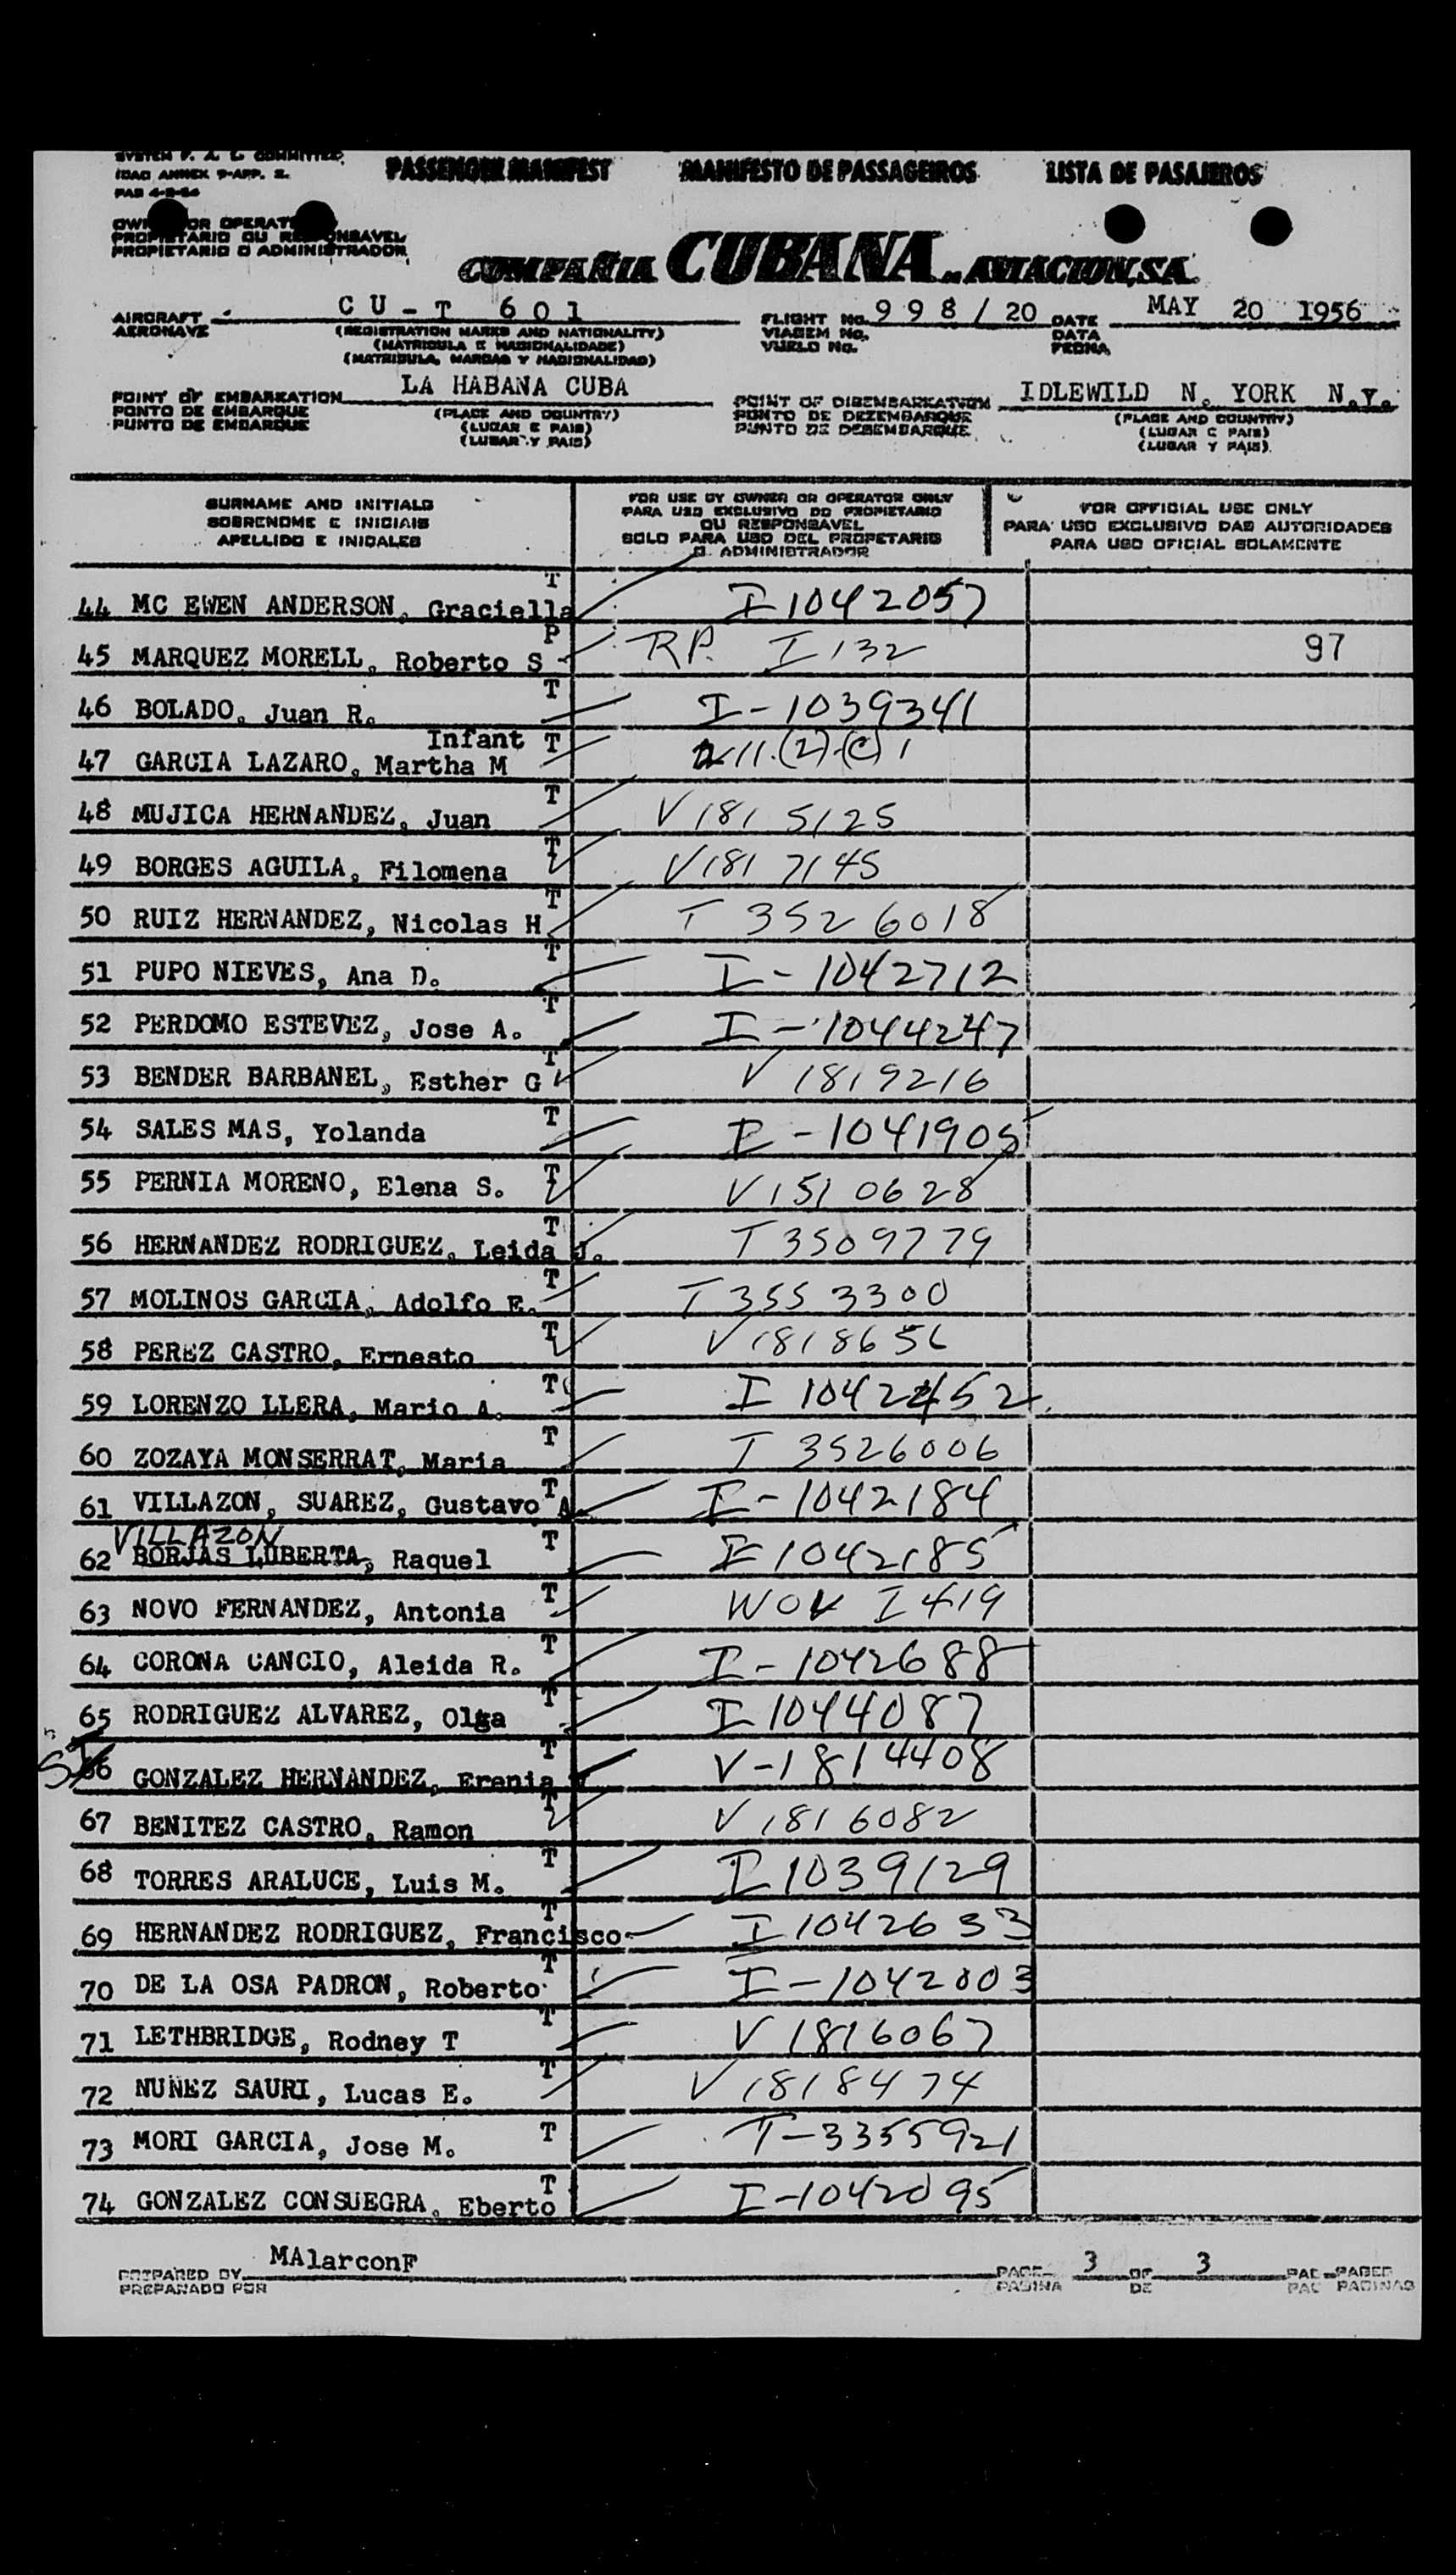 SYSTEM F. A. L. COMMITTEE
ICAO ANNEX 9-APP. 2.
PAB 4-5-54
PASSENGER MANIFEST MANIFESTO DE PASSAGEIROS LISTA DE PASAJEROS
OWNER OR OPERATOR
PROPIETARIO OU RESPONSAVEL
PROPIETARIO O ADMINISTRADOR
COMPAÑIA CUBANA DE AVIACION, S.A.
AIRCRAFT CU-T 601 FLIGHT No. 998/20 DATE MAY 20 1956
AERONAVE (REGISTRATION MARKS AND NATIONALITY) VIAGEM No. DATA
(MATRICULA E NACIONALIDADE) VUELO No. FECHA
(MATRICULA, MARCAS Y NACIONALIDAD)
POINT OF EMBARKATION LA HABANA CUBA POINT OF DISEMBARKATION IDLEWILD N. YORK N.Y.
PONTO DE EMBARQUE (PLACE AND COUNTRY) PONTO DE DEZEMBARQUE (PLACE AND COUNTRY)
PUNTO DE EMBARQUE (LUGAR E PAIS) PUNTO DE DESEMBARQUE (LUGAR E PAIS)
(LUGAR Y PAIS) (LUGAR Y PAIS)
SURNAME AND INITIALS
SOBRENOME E INICIAIS
APELLIDO E INICALES
FOR USE BY OWNER OR OPERATOR ONLY
PARA USO EXCLUSIVO DO PROPIETARIO
OU RESPONSAVEL
SOLO PARA USO DEL PROPETARIO
O ADMINISTRADOR
FOR OFFICIAL USE ONLY
PARA USO EXCLUSIVO DAS AUTORIDADES
PARA USO OFICIAL SOLAMENTE
44 MC EWEN ANDERSON, Graciella T I 1042057
45 MARQUEZ MORELL, Roberto S P RP. I 132 97
46 BOLADO, Juan R. T I-1039341
47 GARCIA LAZARO, Martha M Infant T 211.(2)-(c) 1
48 MUJICA HERNANDEZ, Juan T V 1815125
49 BORGES AGUILA, Filomena T V181 7145
50 RUIZ HERNANDEZ, Nicolas H T T 3526018
51 PUPO NIEVES, Ana D. T I-1042712
52 PERDOMO ESTEVEZ, Jose A. T I-1044247
53 BENDER BARBANEL, Esther G T V 1819216
54 SALES MAS, Yolanda T I-1041905
55 PERNIA MORENO, Elena S. T V1510628
56 HERNANDEZ RODRIGUEZ, Leida J. T T 3509779
57 MOLINOS GARCIA, Adolfo E. T T 3553300
58 PEREZ CASTRO, Ernesto T V1818656
59 LORENZO LLERA, Mario A. T I 1042452
60 ZOZAYA MONSERRAT, Maria T T 3526006
61 VILLAZON, SUAREZ, Gustavo A T I-1042184
VILLAZON
62 BORJAS LUBERTA, Raquel T I 1042185
63 NOVO FERNANDEZ, Antonia T WOV I 419
64 CORONA CANCIO, Aleida R. T I-1042688
65 RODRIGUEZ ALVAREZ, Olga T I 1044087
66 GONZALEZ HERNANDEZ, Erenia T V-1814408
67 BENITEZ CASTRO, Ramon T V 1816082
68 TORRES ARALUCE, Luis M. T I 1039129
69 HERNANDEZ RODRIGUEZ, Francisco T I 1042633
70 DE LA OSA PADRON, Roberto T I-1042003
71 LETHBRIDGE, Rodney T T V 1816067
72 NUÑEZ SAURI, Lucas E. T V 1818474
73 MORI GARCIA, Jose M. T T-3355921
74 GONZALEZ CONSUEGRA, Eberto T I-1042095
PREPARED BY MAlarconF PAGE 3 OF 3 PAGES
PREPARADO POR PAGINA DE PAGINAS